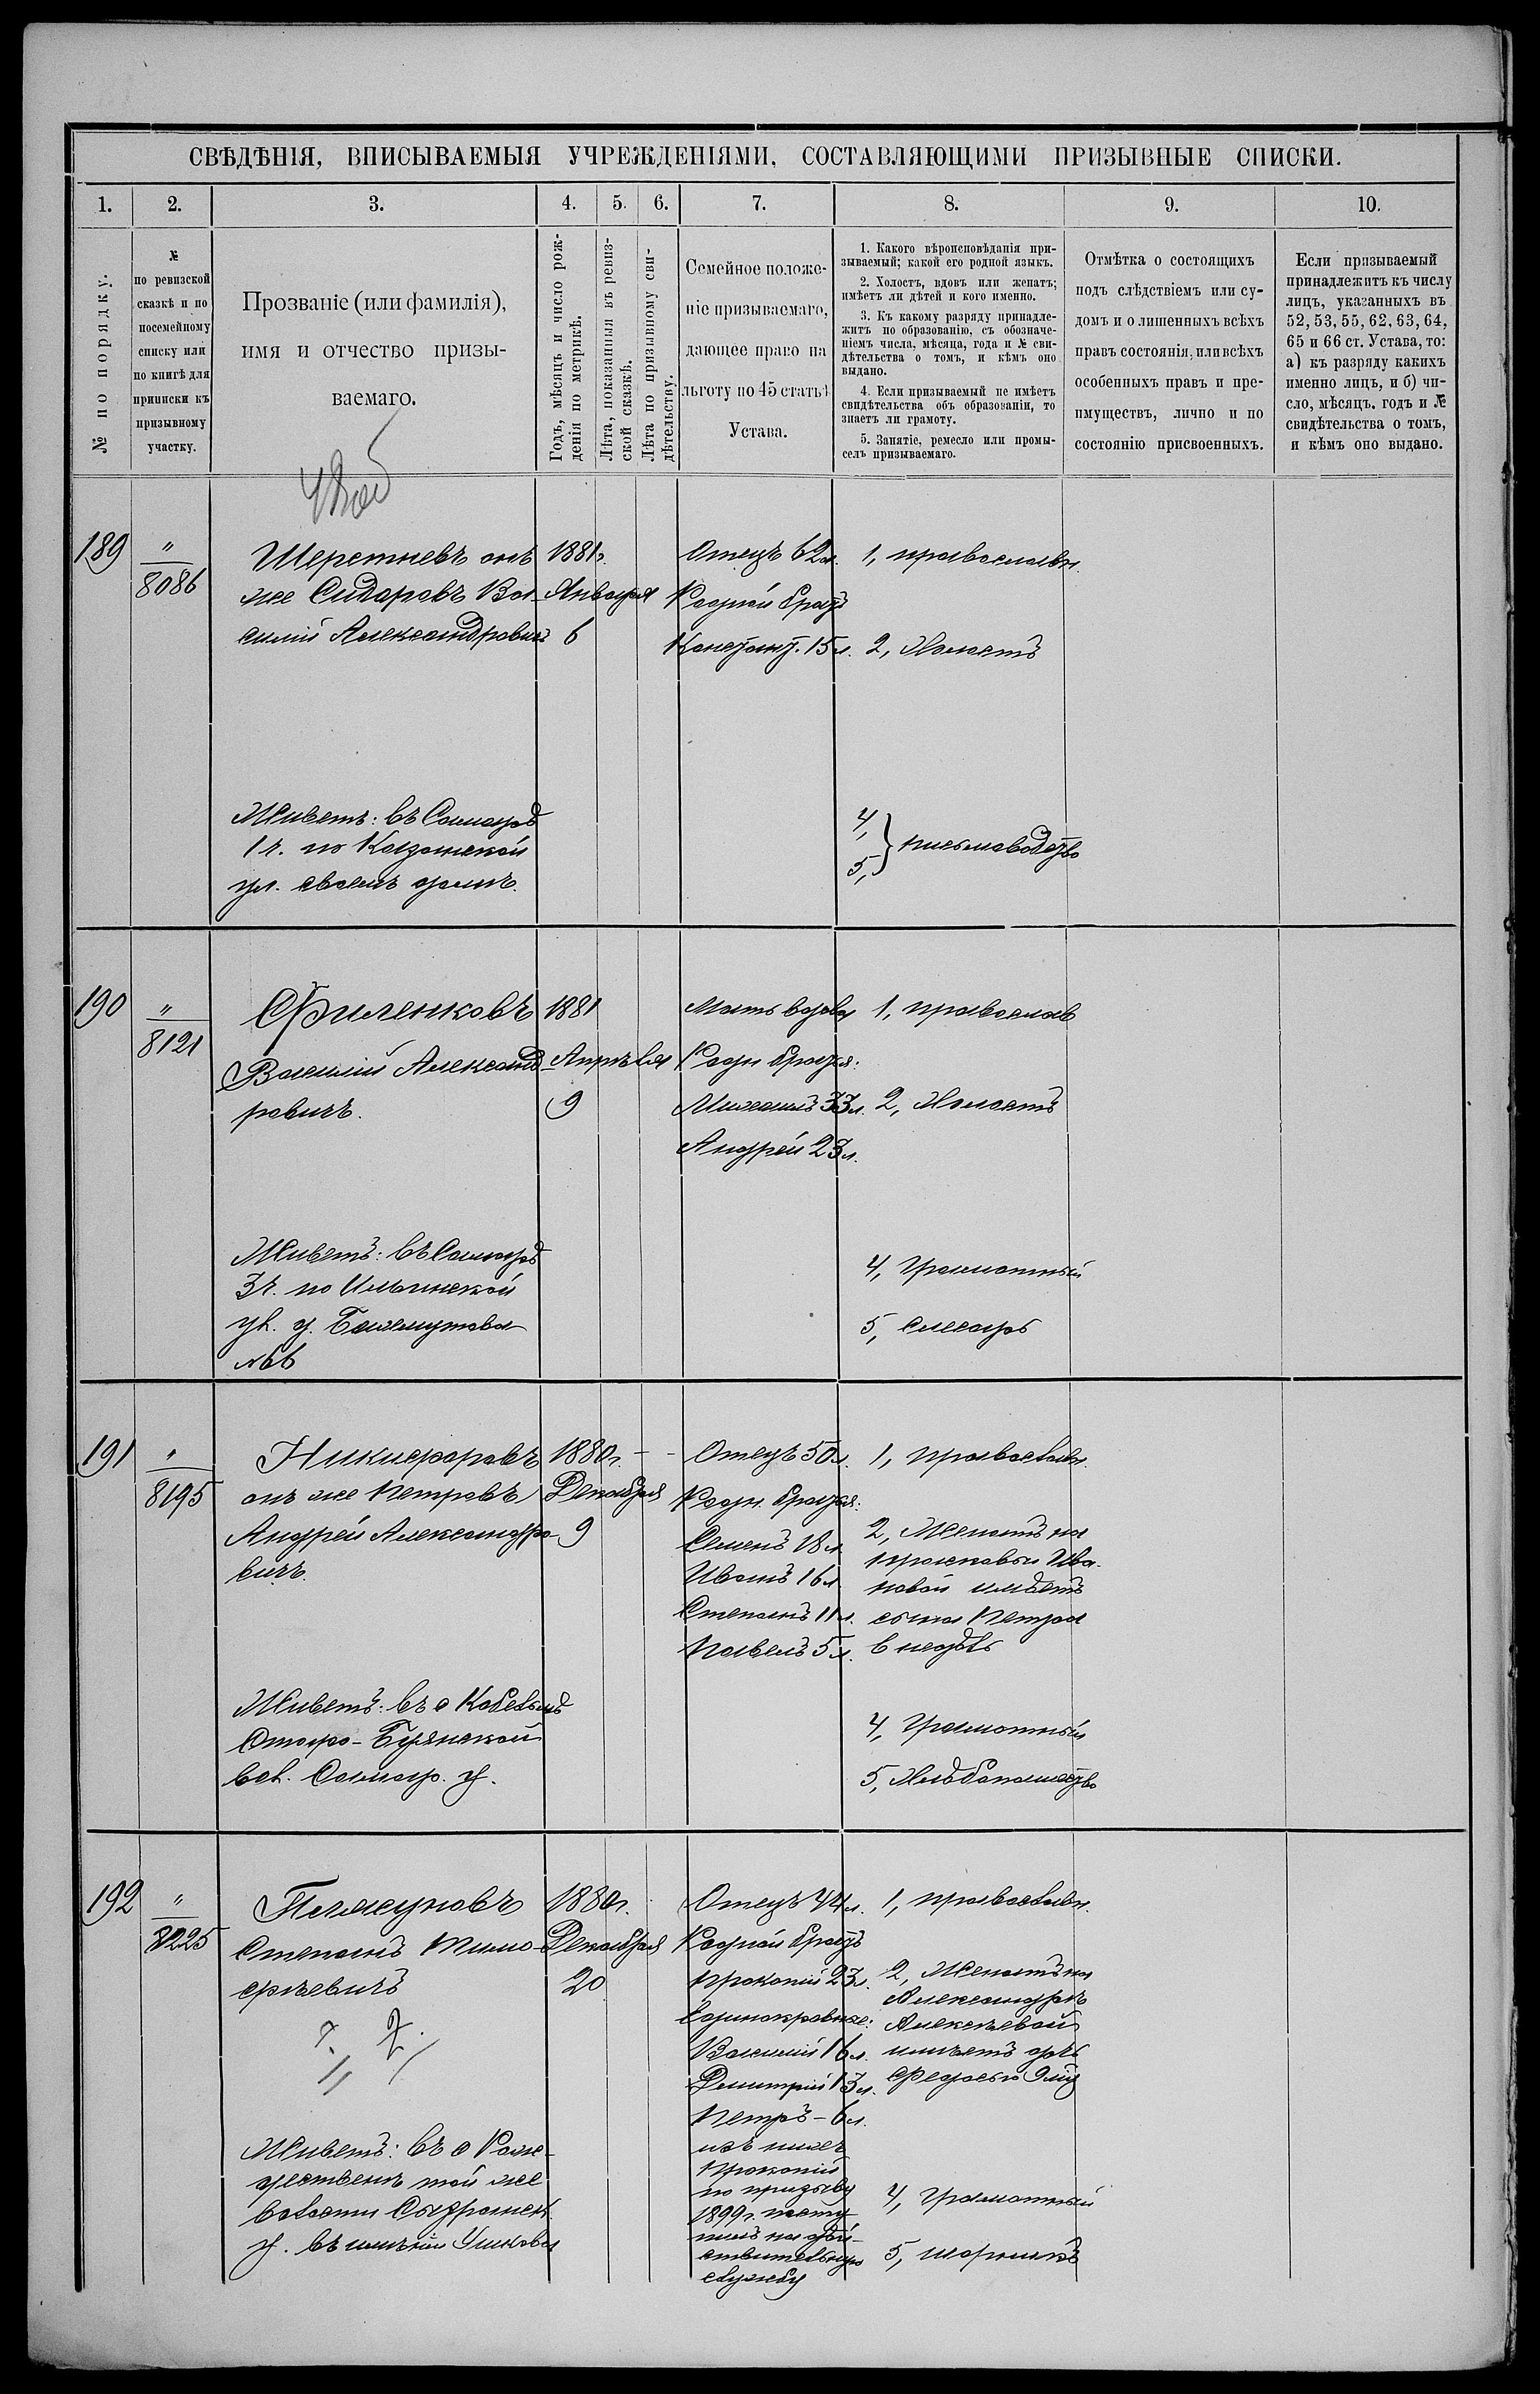 СВѢДѢНІЯ, ВПИСЫВАЕМЫЯ УЧРЕЖДЕНІЯМИ, СОСТАВЛЯЮЩИМИ ПРИЗЫВНЫЕ СПИСКИ.
1. 2. 3. 4. 5. 6. 7. 8. 9. 10.
№ по порядку.
№
по ревизской
сказкѣ и по
посемейному
списку или
по книгѣ для
приписки къ
призывному
участку.
Прозваніе (или фамилія),
имя и отчество призы-
ваемаго.
Годъ, мѣсяцъ и число рож-
денія по метрикѣ.
Лѣта, показанныя въ ревиз-
ской сказкѣ.
Лѣта по призывному сви-
дѣтельству.
Семейное положе-
ніе призываемаго,
дающее право на
льготу по 45 статьѣ
Устава.
1. Какого вѣроисповѣданія при-
зываемый; какой его родной языкъ.
2. Холостъ, вдовъ или женатъ;
имѣетъ ли дѣтей и кого именно.
3. Къ какому разряду принадле-
житъ по образованію, съ обозначе-
ніемъ числа, мѣсяца, года и № сви-
дѣтельства о томъ, и кѣмъ оно
выдано.
4. Если призываемый не имѣетъ
свидѣтельства объ образованіи, то
знаетъ ли грамоту.
5. Занятіе, ремесло или промы-
селъ призываемаго.
Отмѣтка о состоящихъ
подъ слѣдствіемъ или су-
домъ и о лишенныхъ всѣхъ
правъ состоянія, или всѣхъ
особенныхъ правъ и пре-
имуществъ, лично и по
состоянію присвоенныхъ.
Если призываемый
принадлежитъ къ числу
лицъ, указанныхъ въ
52, 53, 55, 62, 63, 64,
65 и 66 ст. Устава, то:
а) къ разряду какихъ
именно лицъ, и б) чи-
сло, мѣсяцъ, годъ и №
свидѣтельства о томъ,
и кѣмъ оно выдано.
189
"
8086
Шерстневъ онъ
же Сидоровъ Ва-
силій Александровичъ
1881 г.
Января
6
Отецъ 62 л.
Родной братъ
Констант. 15 л.
1, православн.
2, Холостъ
Живетъ: въ Самарѣ
1 ч. по Казанской
ул. своемъ домѣ.
4,
5,
письмоводство
190
"
8121
Филенковъ
Василій Александ-
ровичъ.
1881
Апрѣля
9
Мать вдова
Родн братья:
Михаилъ 33 л.
Андрей 23 л.
1, православ
2, Холостъ
Живетъ: въ Самарѣ
3 ч. по Ильинской
ул. д.
№66
4, Грамотный
5, Слесарь
191
"
8195
Никифоровъ
онъ же Петровъ
Андрей Александро-
вичъ.
1880 г. - -
Декабря
9
Отецъ 50 л.
Родн. братья:
Семенъ 18 л.
Иванъ 16 л.
Степанъ 11 л.
Павелъ 5 л.
1, православн.
2, Женатъ на
Прасковьи Ива-
новой имѣетъ
сына Петра
6 недѣль
Живетъ: въ с Кобельмѣ
Старо-Буянской
вол. Самар. у.
4, Грамотный
5, Хлѣбопашество
192
"
8225
Плясуновъ
Степанъ Тимо-
фѣевичъ
1880 г.
Декабря
20
Отецъ 44 л.
Родной братъ
Прокопій 23 л.
Единокровные:
Василій 16 л.
Дмитрій 13 л.
Петръ - 6 л.
изъ нихъ
Прокопій
по призыву
1899 г. посту
пилъ на дѣй-
ствительную
службу
1, православн.
2, Женатъ на
Александрѣ
Алексѣевой
имѣетъ дочь
Федосью
Живетъ: въ с Рож-
дественѣ той же
волости Сызранск.
у. въ имѣніи Ушкова
4, Грамотный
5,